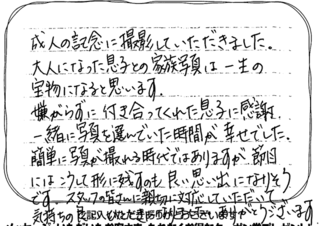 成人の記念に撮影していただきました。
大人になった息子との家族写真は一生の
宝物になると思います。
嫌がらずに付き合ってくれた息子に感謝
一緒に写真を選んでいた時間が幸せでした。
簡単に写真が撮れる時代ではありますが節目
にはこうして形に残すのも良い思い出になりそう
です。スタッフの皆さんに親切に対応していただいて
気持ちの良い ありがとうございます